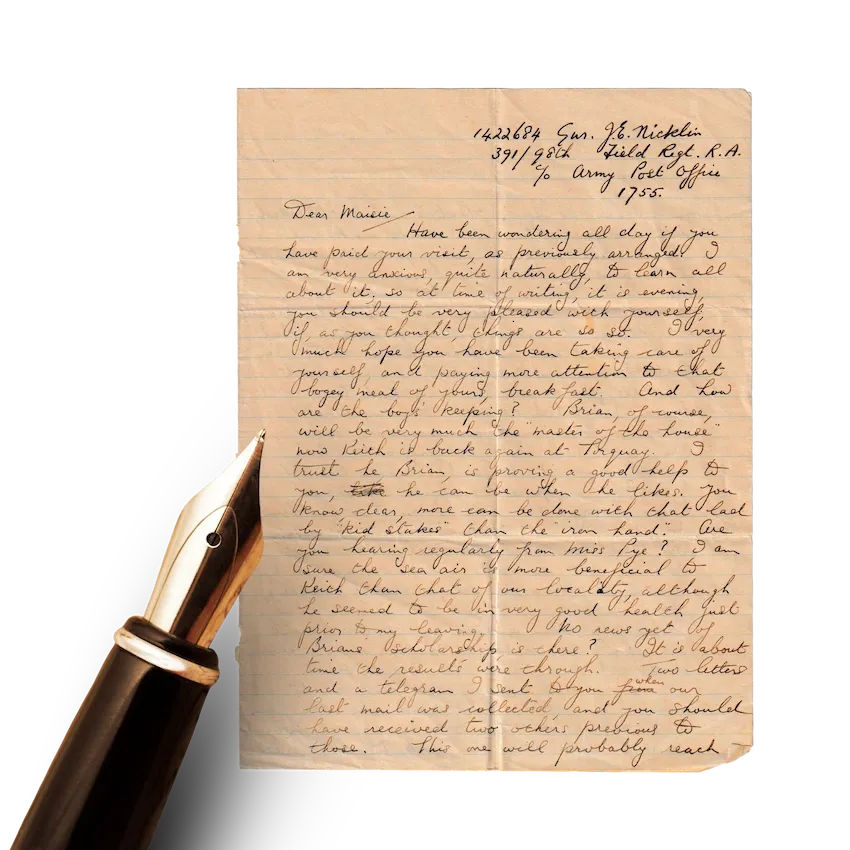 1422684 Gnr. J.E. Nicklin
391/98th Field Regt. R.A.
c/o Army Post Office
1755.
Dear Maisie
Have been wondering all day if you
have paid your visit, as previously arranged. I
am very anxious, quite naturally, to learn all
about it, so at time of writing, it is evening,
you should be very pleased with yourself,
if, as you thought, things are so so. I very
much hope you have been taking care of
yourself, and paying more attention to that
bogey meal of yours, breakfast. And how
are the boys keeping? Brian, of course,
will be very much the "master of the house"
now Keith is back again at Torquay. I
trust he, Brian, is proving a good help to
you, like he can be when he likes. You
know dear, more can be done with that lad
by "kid stakes" than the "iron hand". Are
you hearing regularly from Miss Pye? I am
sure the sea air is more beneficial to
Keith than that of our locality, although
he seemed to be in very good health just
prior to my leaving. No news yet of
Brian's scholarship is there? It is about
time the results were through. Two letters
and a telegram I sent to you from when our
last mail was collected, and you should
have received two others previous to
those. This one will probably reach